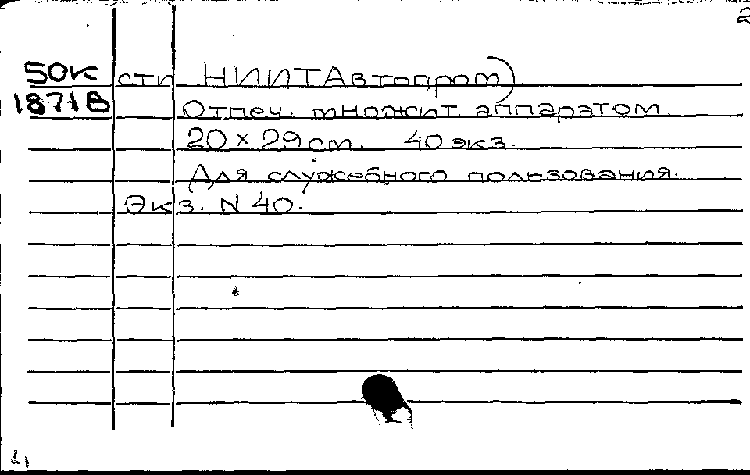 2
50к сти НИИТАвтопром)
1871В Отпеч. множит. аппаратом.
20 × 29 см. 40 экз.
Для служебного пользования.
Экз. N 40.